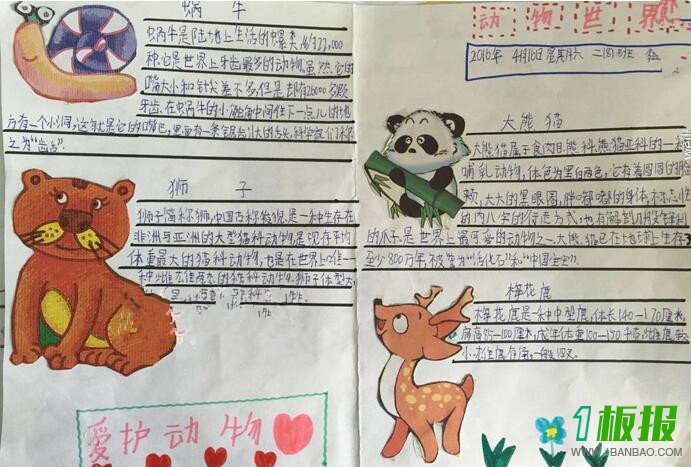 蜗 牛
蜗牛是陆地上生活的螺类,约22,000
种,它是世界上牙齿最多的动物。虽然,它的
嘴大小和针尖差不多,但是却有26000多颗
牙齿。在蜗牛的小触角中间往下一点儿的地
方有一个小洞,这就是它的嘴巴,里面有一条锯齿状的舌头,科学家们称
之为“齿舌”。
狮 子
狮子简称狮,中国古称狻猊,是一种生存在
非洲与亚洲的大型猫科动物,是现存平均
体重最大的猫科动物,也是在世界上唯一
一种雌雄两态的猫科动物。狮子体型大,
爱护动物
动物世界
2016年 4月16日 星期六 二(8)班
大熊猫
大熊猫属于食肉目、熊科、熊猫亚科的一种
哺乳动物,体色为黑白两色,它有着圆圆的脸
颊,大大的黑眼圈,胖嘟嘟的身体,标志性
的内八字的行走方式,也有解剖刀般锋利
的爪子。是世界上最可爱的动物之一。大熊猫已在地球上生存了
至少800万年,被誉为“活化石”和“中国国宝”。
梅花鹿
梅花鹿是一种中型鹿,体长140—170厘米,
肩高85—100厘米,成年体重100—150千克,雌鹿较
小,雄鹿有角,一般四叉。
1板报
WWW.1BANBAO.COM